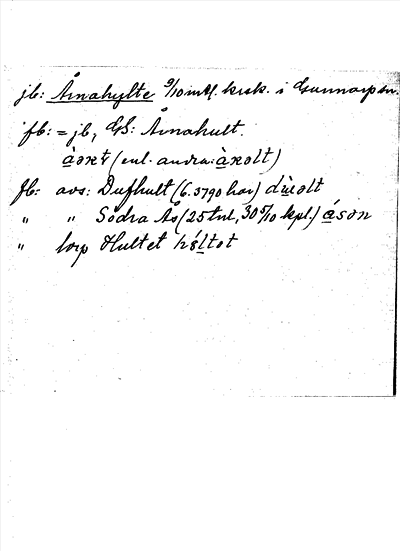 jb: Årnahylte 9/10 mtl. krsk. i Gunnarp sn.
fb: = jb, GS: Årnahult.
(enl. andra: àrolt)
fb: avs: Dufhult (6.3790 har)
" " Södra Ås (25 tnl, 30 5/10 kpl.) áson
" torp Hultet hóltot